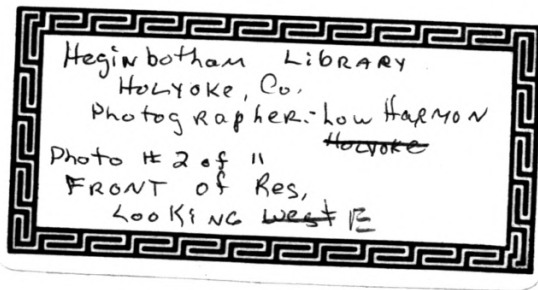 Heginbotham LibRARY
HoLYOKE, Co.
PhotogRapheR:- Low HARMON
Holyoke
Photo # 2 of 11
FRONT of Res,
LooKiNG west E